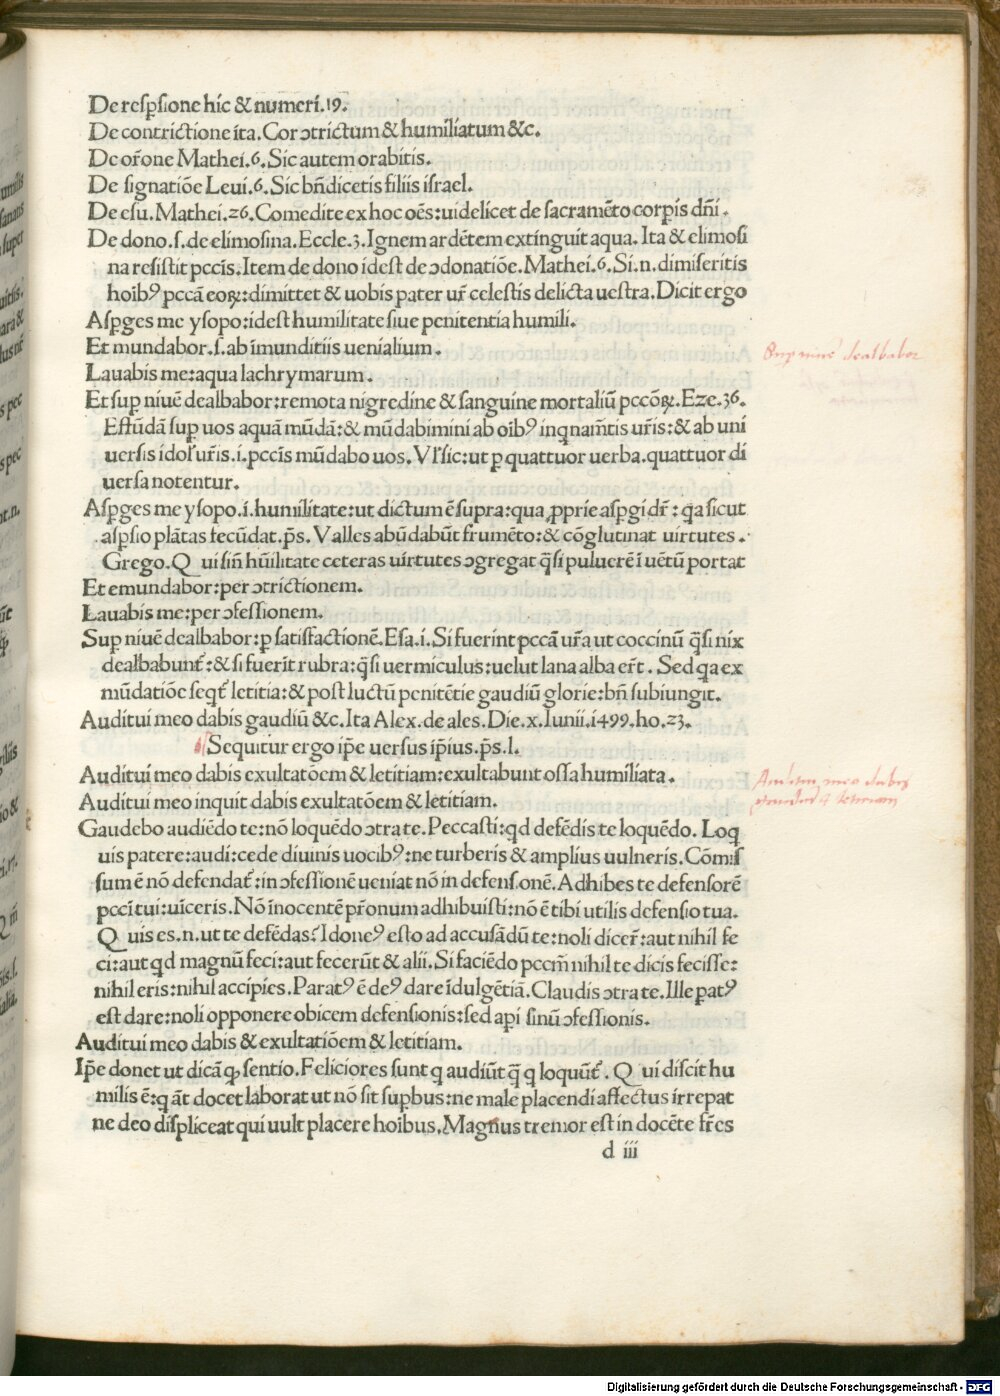 De respsione hic & numeri.19.
De contrictione ita. Cor ɔtrictum & humiliatum &c.
De or̄one Mathei.6. Sic autem orabitis.
De signatiōe Leui.6. Sic bn̄dicetis filiis israel.
De esu. Mathei.26. Comedite ex hoc oēs: uidelicet de sacramēto corpis dn̄i.
De dono.s. de elimosina. Eccle.3. Ignem ardētem extinguit aqua. Ita & elimosi
na resistit pccīs. Item de dono idest de ɔdonatiōe. Mathei.6. Si.n. dimiseritis
hoībꝰ pccā eoꝝ: dimittet & uobis pater ur̄ celestis delicta uestra. Dicit ergo
Aspges me ysopo: idest humilitate siue penitentia humili.
Et mundabor.s. ab īmunditiis uenialium.
Lauabis me: aqua lachrymarum.
Et sup niuē dealbabor: remota nigredine & sanguine mortaliū pccōꝝ. Eze.36.
Estūdā sup uos aquā mūdā: & mūdabimini ab oībꝰ inqnam̄tis ur̄is: & ab uni
uersis idol' ur̄is.i. pccīs mūdabo uos. Vl' sic: ut p quattuor uerba. quattuor di
uersa notentur.
Aspges me ysopo.i. humilitate: ut dictum ē supra: qua ꝓprie aspgi dr̄: qa sicut
aspsio plātas fecūdat. ps̄. Valles abūdabūt frumēto: & cōglutinat uirtutes.
Grego. Qui sin̄ hūilitate ceteras uirtutes ɔgregat q̄si puluerē ī uētū portat
Et emundabor: per ɔtrictionem.
Lauabis me: per ɔfessionem.
Sup niuē dealbabor: p satisfactionē. Esa.i. Si fuerint pccā ur̄a ut coccinū q̄si nix
dealbabunt̄: & si fuerīt rubra: q̄si uermiculus: uelut lana alba er̄t. Sed qa ex
mūdatiōe seqt̄ letitia: & post luctū penitētie gaudiū glorie: bn̄ subiungit.
Auditui meo dabis gaudiū &c. Ita Alex. de ales. Die.x. Iunii.i499.ho.23.
Sequitur ergo ip̄e uersus ip̄ius. ps̄.l.
Auditui meo dabis exultatōem & letitiam: exultabunt ossa humiliata.
Auditui meo inquit dabis exultatōem & letitiam.
Gaudebo audiēdo te: nō loquēdo ɔtra te. Peccasti: qd defēdis te loquēdo. Loq
uis patere: audi: cede diuinis uocibꝰ: ne turberis & amplius uulneris. Cōmis
sum ē nō defendat̄: in ɔfessionē ueniat nō in defensionē. Adhibes te defensorē
pccī tui: uīceris. Nō īnocentē pr̄onum adhibuisti: nō ē tibi utilis defensio tua.
Quis es.n. ut te defēdas? Idoneꝰ esto ad accusādū te: noli dicer̄: aut nihil fe
ci: aut qd magnū feci: aut fecerūt & alii. Si faciēdo pccm̄ nihil te dicis fecisse:
nihil eris: nihil accipies. Paratꝰ ē deꝰ dare īdulgētiā. Claudis ɔtra te. Ille patꝰ
est dare: noli opponere obicem defensionis: sed api sinū ɔfessionis.
Auditui meo dabis & exultatiōem & letitiam.
Ip̄e donet ut dicā qꝫ sentio. Feliciores sunt q audiūt q̄ q loquūt̄. Qui discit hu
milis ē: q āt docet laborat ut nō sit supbus: ne male placendi affectus irrepat
ne deo displiceat qui uult placere hoibus. Magnus tremor est in docēte fr̄es
d iii
Sup niuē dealbabor
Auditui meo dabis
gaudiū & letitiam
Digitalisierung gefördert durch die Deutsche Forschungsgemeinschaft - DFG